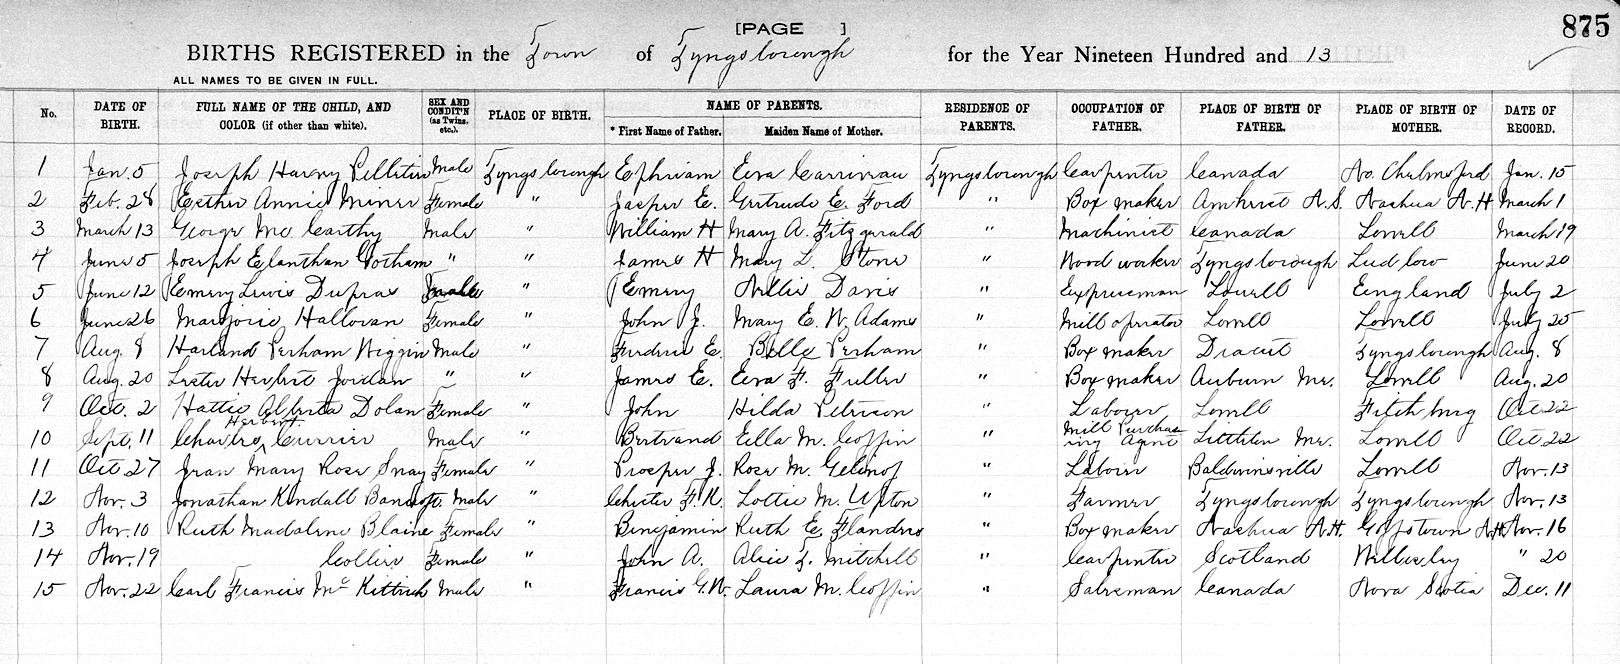 [PAGE ] 875
BIRTHS REGISTERED in the Town of Tyngsborough for the Year Nineteen Hundred and 13
ALL NAMES TO BE GIVEN IN FULL.
No. DATE OF BIRTH. FULL NAME OF THE CHILD, AND COLOR (if other than white). SEX AND CONDIT'N (as Twins, etc.). PLACE OF BIRTH. NAME OF PARENTS. * First Name of Father. Maiden Name of Mother. RESIDENCE OF PARENTS. OCCUPATION OF FATHER. PLACE OF BIRTH OF FATHER. PLACE OF BIRTH OF MOTHER. DATE OF RECORD.
1 Jan. 5 Joseph Harvey Pelletier Male Tyngsborough Ephriam Eva Tyngsborough Carpenter Canada No. Chelmsford Jan. 15
2 Feb. 28 Esther Annie Miner Female " Jasper E. Gertrude E. Ford " Box maker Amherst N.S. Nashua N.H March 1
3 March 13 George Mc Carthy Male " William H Mary A. Fitzgerald " Machinist Canada Lowell March 19
4 June 5 Joseph Elanthan Gotham " " James H Mary L. Stone " Wood worker Tyngsborough Ludlow June 20
5 June 12 Emery Lewis Dupras Male " Emery Nellie Davis " Expressman Lowell England July 2
6 June 26 Marjorie Halloran Female " John J. Mary E. W. Adams " Mill operator Lowell Lowell July 25
7 Aug. 8 Harland Perham Wiggin Male " Frederic E. Belle Perham " Box maker Dracut Tyngsborough Aug. 8
8 Aug. 20 Lester Herbert Jordan " " James E. Eva F. Fuller " Box maker Auburn Me. Lowell Aug. 20
9 Oct. 2 Hattie Alberta Dolan Female " John Hilda Peterson " Laborer Lowell Fitchburg Oct 22
10 Sept. 11 Charles Herbert Currier Male " Bertrand Ella M. Coffin " Mill Purchasing Agent Littleton Me. Lowell Oct 22
11 Oct 27 Jean Mary Rose Snay Female " Prosper J. Rose M. " Laborer Baldwinsville Lowell Nov. 13
12 Nov. 3 Jonathan Kendall Bancroft. Male " Chester F. R. Lottie M. Upton " Farmer Tyngsborough Tyngsborough Nov. 13
13 Nov. 10 Ruth Madalene Blaine Female " Benjamin Ruth E. Flanders " Box maker Nashua N.H. Goffstown N.H Nov. 16
14 Nov. 19 Collier Female " John A. Alice L. Mitchell " Carpenter Scotland " 20
15 Nov. 22 Carl Francis Mc Kittrick Male " Francis G.W. Laura M. Coffin " Salesman Canada Nova Scotia Dec. 11